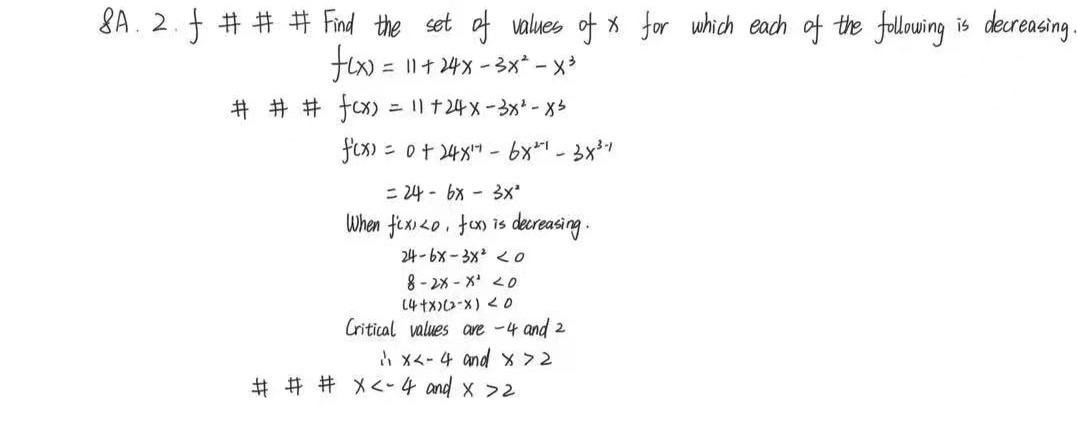 8A. 2. f # # # Find the set of values of x for which each of the following is decreasing.
f(x) = 11 + 24x - 3x² - x³
# # # f(x) = 11 + 24x - 3x² - x³
f'(x) = 0 + 24x¹⁻¹ - 6x²⁻¹ - 3x³⁻¹
= 24 - 6x - 3x²
When f'(x) < 0, f(x) is decreasing.
24 - 6x - 3x² < 0
8 - 2x - x² < 0
(4+x)(2-x) < 0
Critical values are -4 and 2
∴ x < -4 and x > 2
# # # x < -4 and x > 2